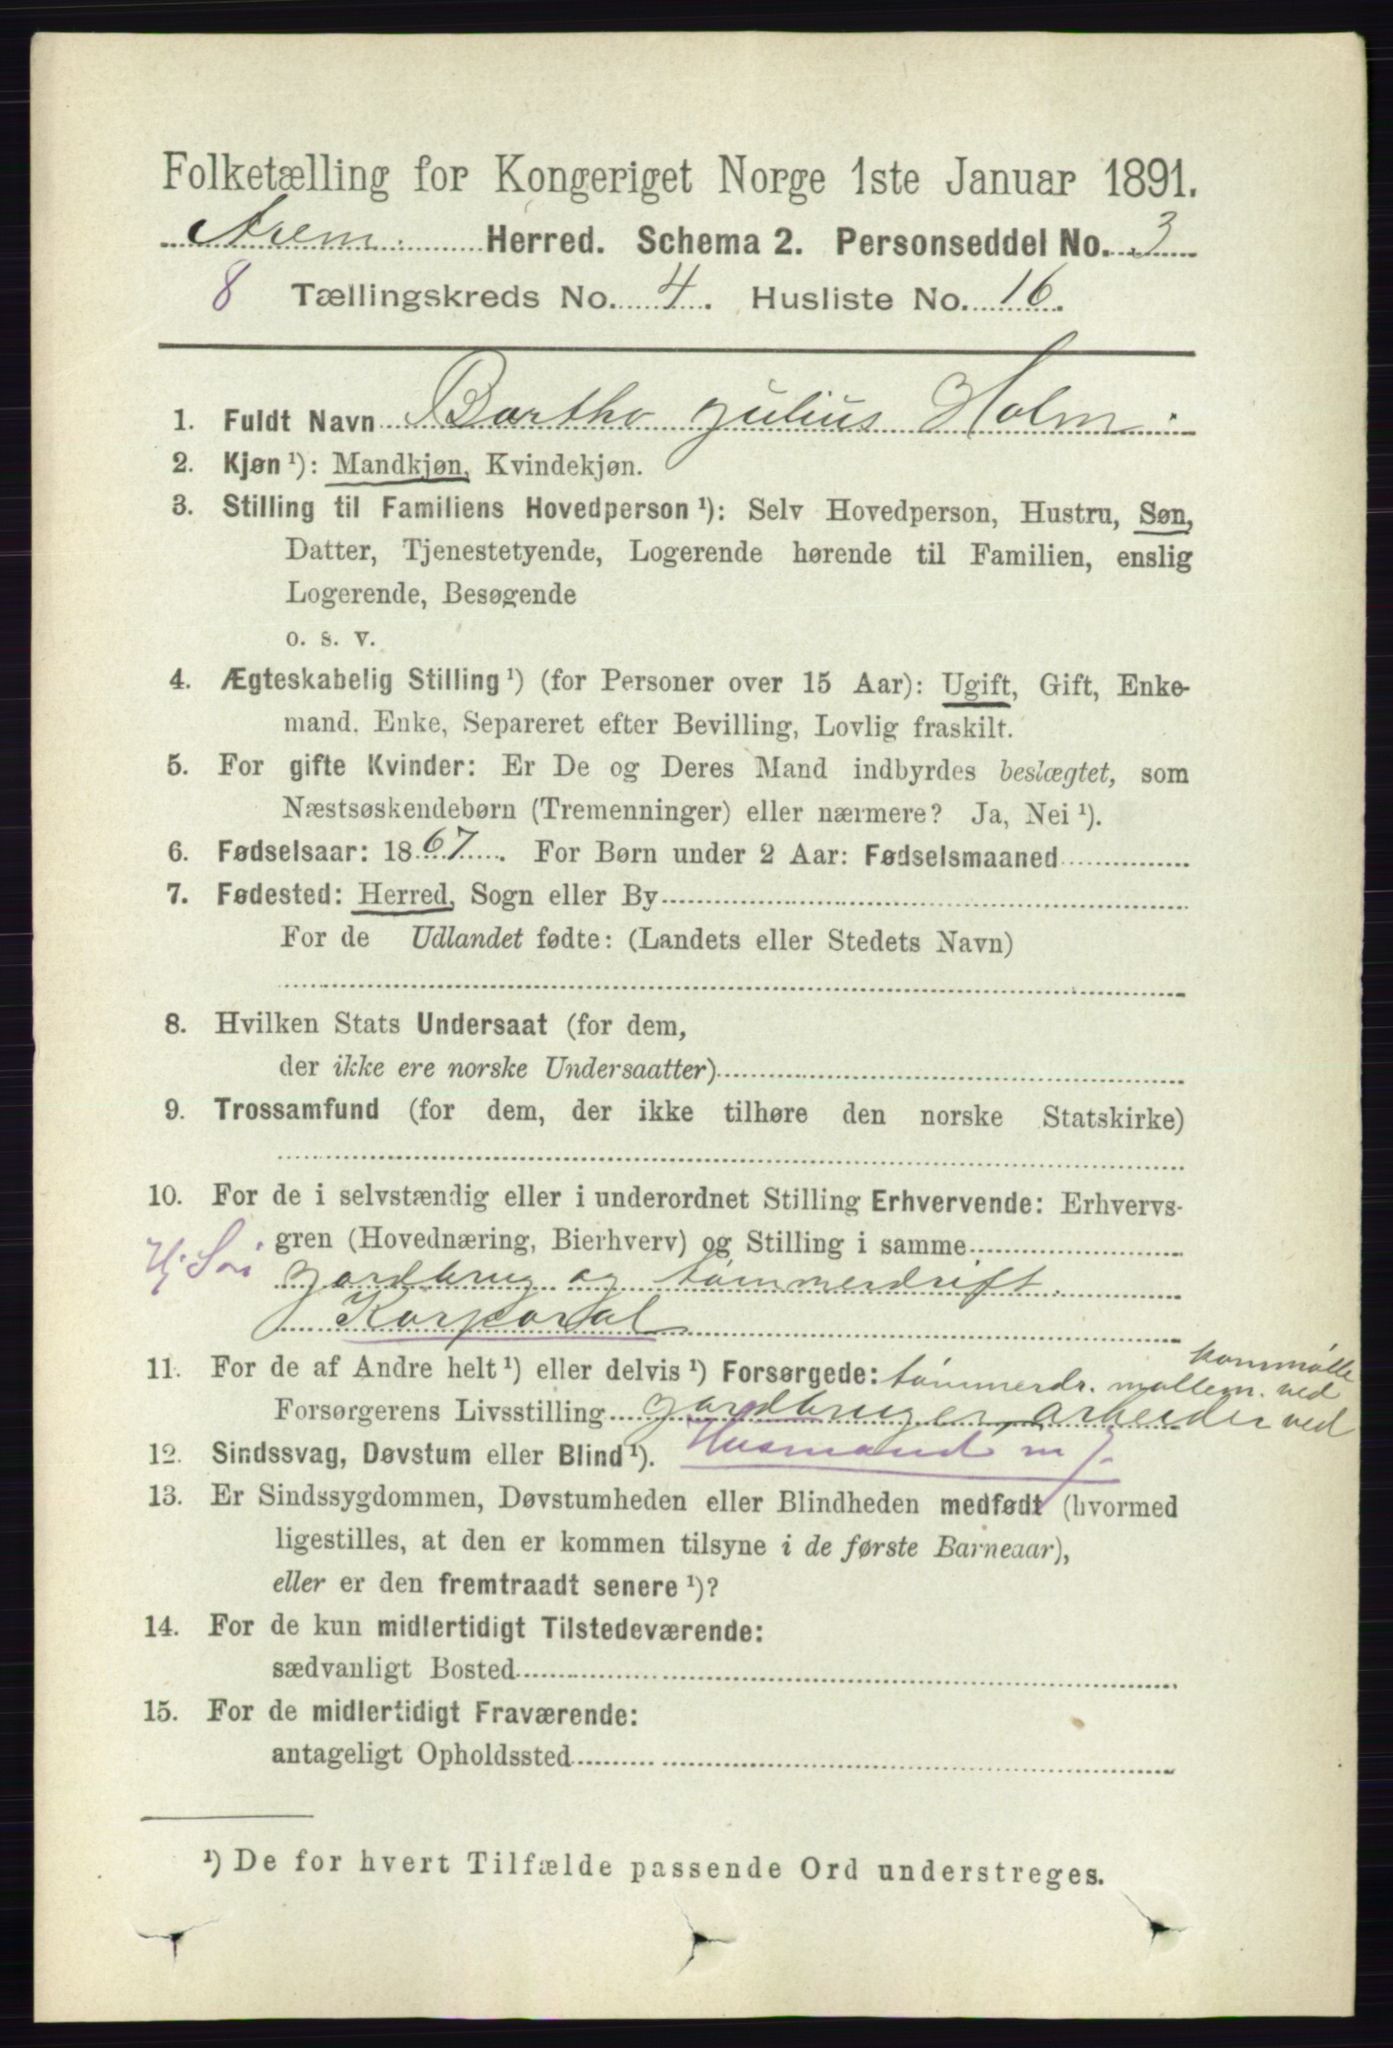 Folketælling for Kongeriget Norge 1ste Januar 1891.
Arem Herred. Schema 2. Personseddel No. 3
8 Tællingskreds No. 4. Husliste No. 16.
1. Fuldt Navn Bartho Julius Holm.
2. Kjøn ¹): Mandkjøn, Kvindekjøn.
3. Stilling til Familiens Hovedperson ¹): Selv Hovedperson, Hustru, Søn,
Datter, Tjenestetyende, Logerende hørende til Familien, enslig
Logerende, Besøgende
o. s. v.
4. Ægteskabelig Stilling ¹) (for Personer over 15 Aar): Ugift, Gift, Enke-
mand, Enke, Separeret efter Bevilling, Lovlig fraskilt.
5. For gifte Kvinder: Er De og Deres Mand indbyrdes beslægtet, som
Næstsøskendebørn (Tremenninger) eller nærmere? Ja, Nei ¹).
6. Fødselsaar: 1867. For Børn under 2 Aar: Fødselsmaaned
7. Fødested: Herred, Sogn eller By
For de Udlandet fødte: (Landets eller Stedets Navn)
8. Hvilken Stats Undersaat (for dem,
der ikke ere norske Undersaatter)
9. Trossamfund (for dem, der ikke tilhøre den norske Statskirke)
10. For de i selvstændig eller i underordnet Stilling Erhvervende: Erhvervs-
gren (Hovednæring, Bierhverv) og Stilling i samme
Hj. Søn gardbrug og tømmerdrift.
Korporal
11. For de af Andre helt ¹) eller delvis ¹) Forsørgede: tømmerdr. møllem. ved kornmølle
Forsørgerens Livsstilling gardbruger, arbeider ved
12. Sindssvag, Døvstum eller Blind ¹). Husmand m j.
13. Er Sindssygdommen, Døvstumheden eller Blindheden medfødt (hvormed
ligestilles, at den er kommen tilsyne i de første Barneaar),
eller er den fremtraadt senere ¹)?
14. For de kun midlertidigt Tilstedeværende:
sædvanligt Bosted
15. For de midlertidigt Fraværende:
antageligt Opholdssted
¹) De for hvert Tilfælde passende Ord understreges.